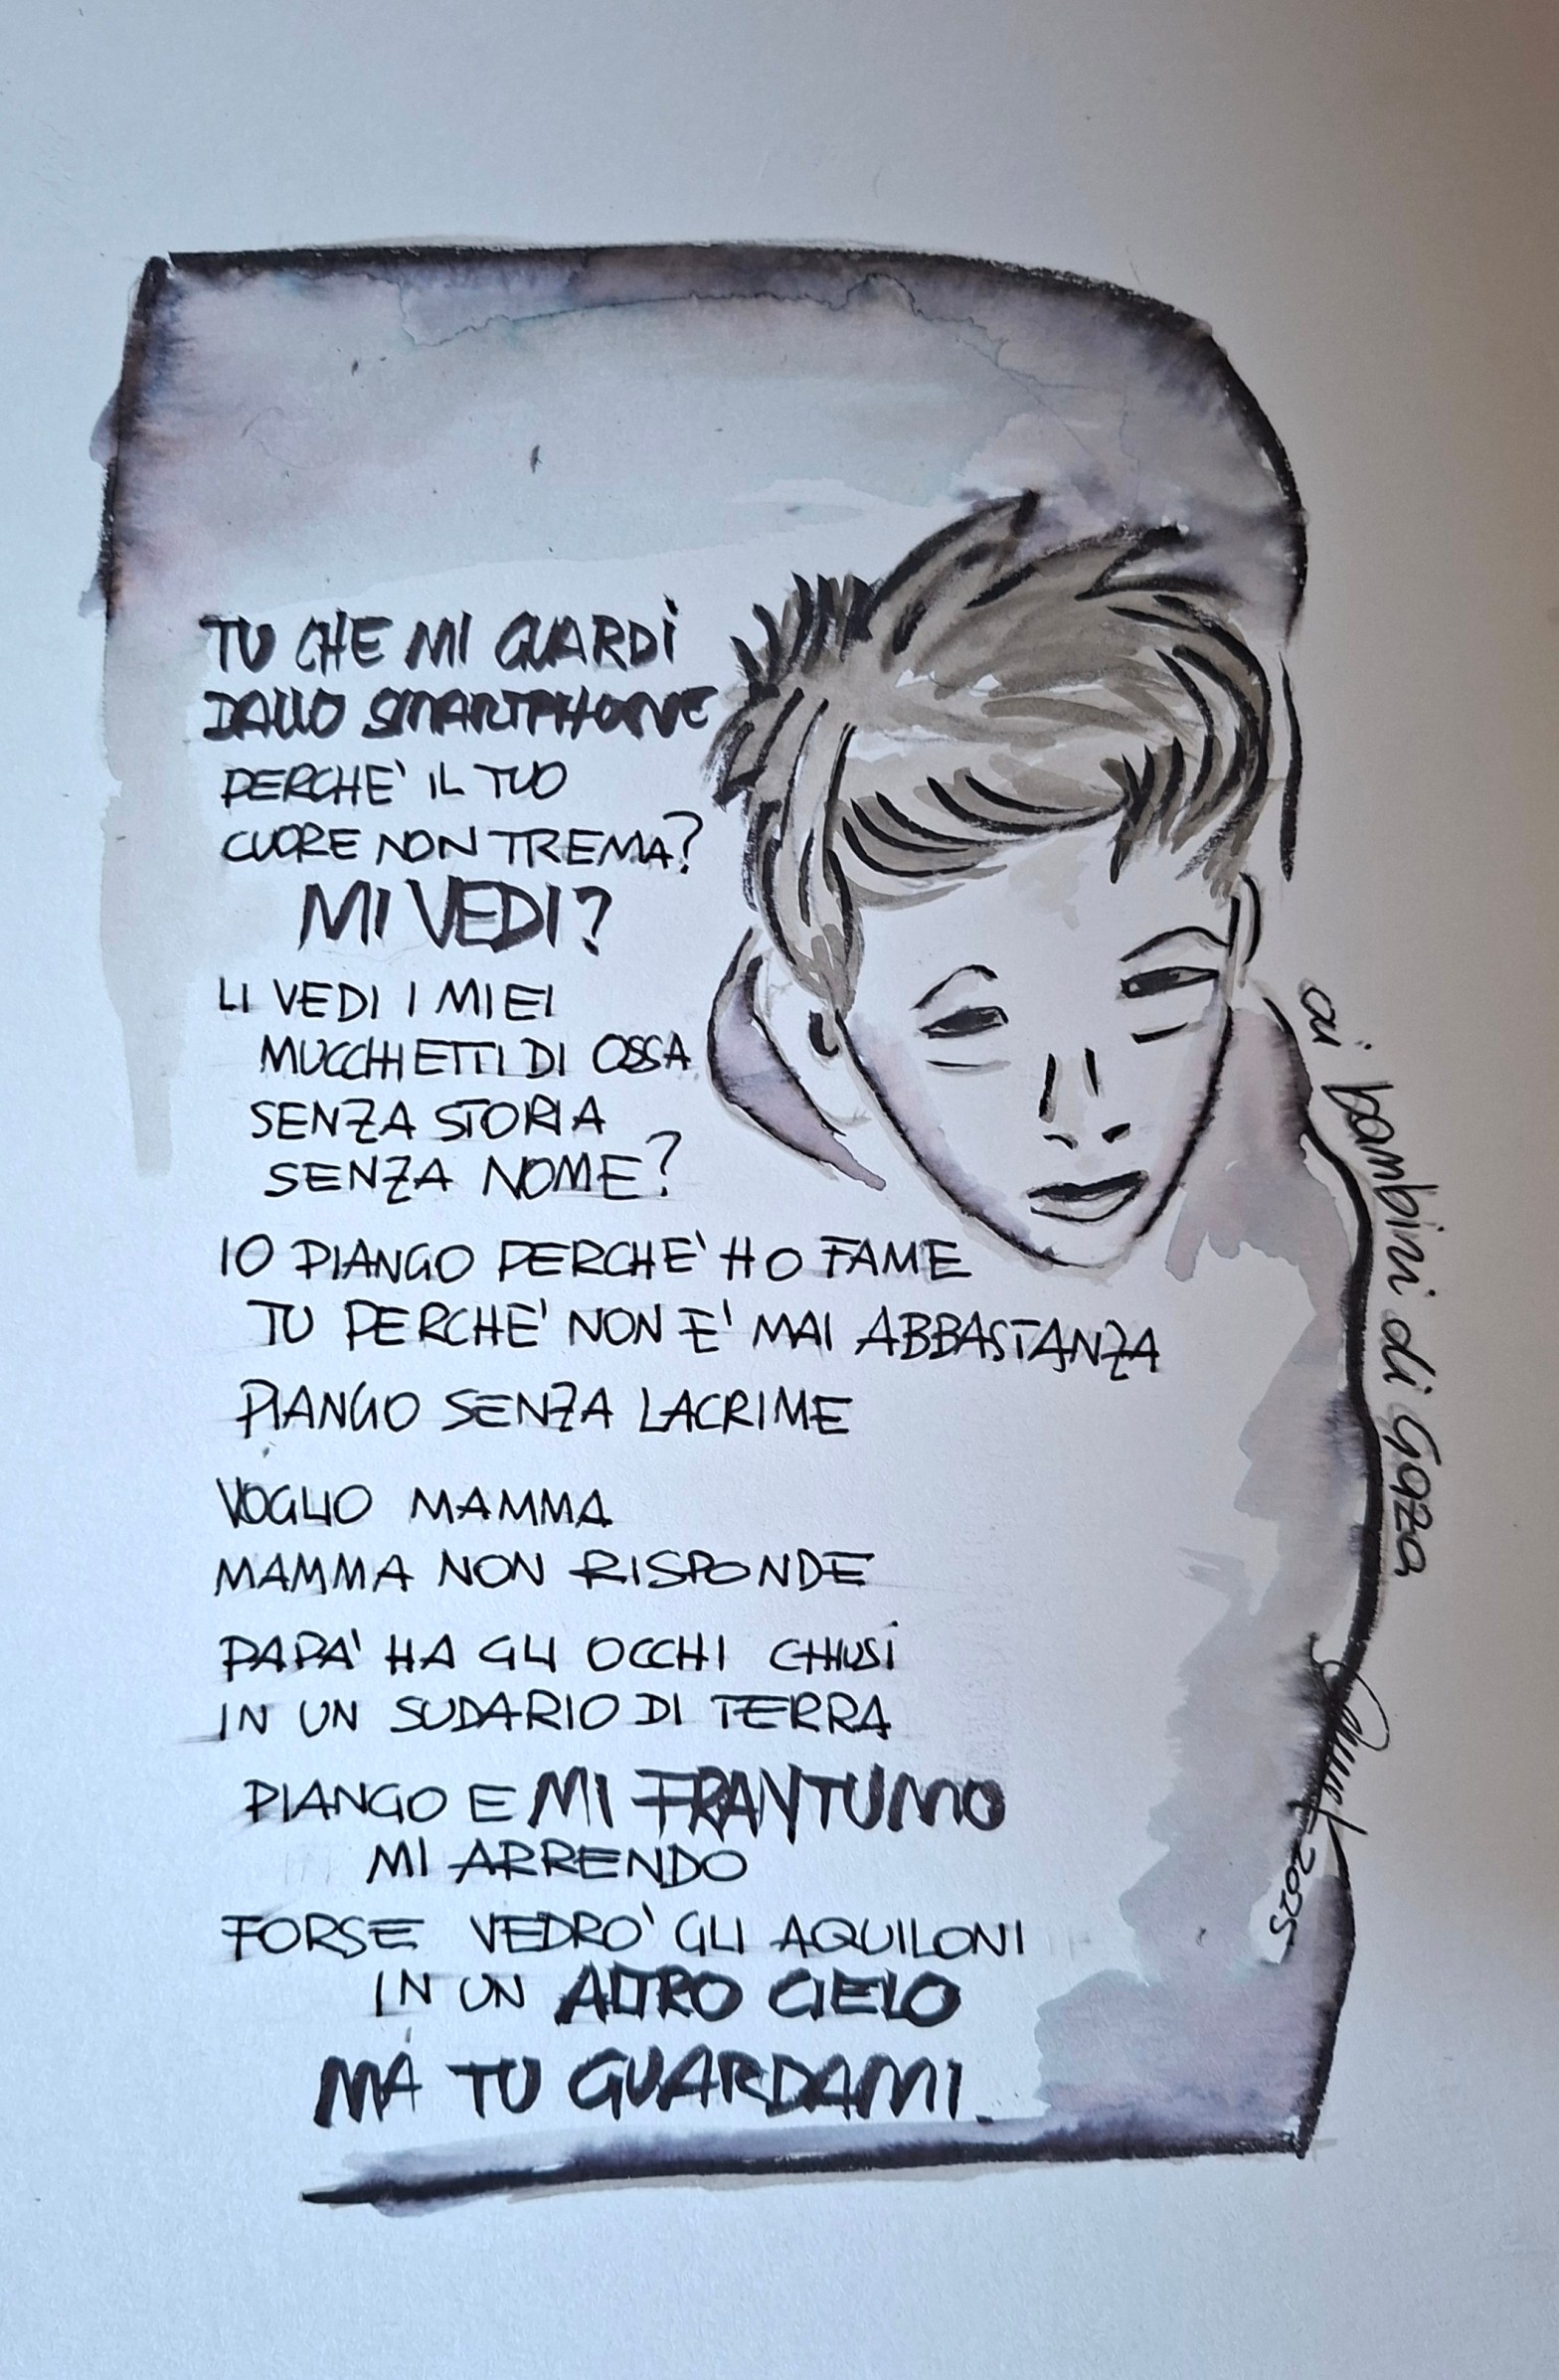 TU CHE MI GUARDI
DALLO SMARTPHONE
PERCHE' IL TUO
CUORE NON TREMA?
MI VEDI?
LI VEDI I MIEI
MUCCHIETTI DI OSSA
SENZA STORIA
SENZA NOME?
IO PIANGO PERCHE' HO FAME
TU PERCHE' NON E' MAI ABBASTANZA
PIANGO SENZA LACRIME
VOGLIO MAMMA
MAMMA NON RISPONDE
PAPA' HA GLI OCCHI CHIUSI
IN UN SUDARIO DI TERRA
PIANGO E MI FRANTUMO
MI ARRENDO
FORSE VEDRO' GLI AQUILONI
IN UN ALTRO CIELO
MA TU GUARDAMI.
ai bambini di Gaza
2025